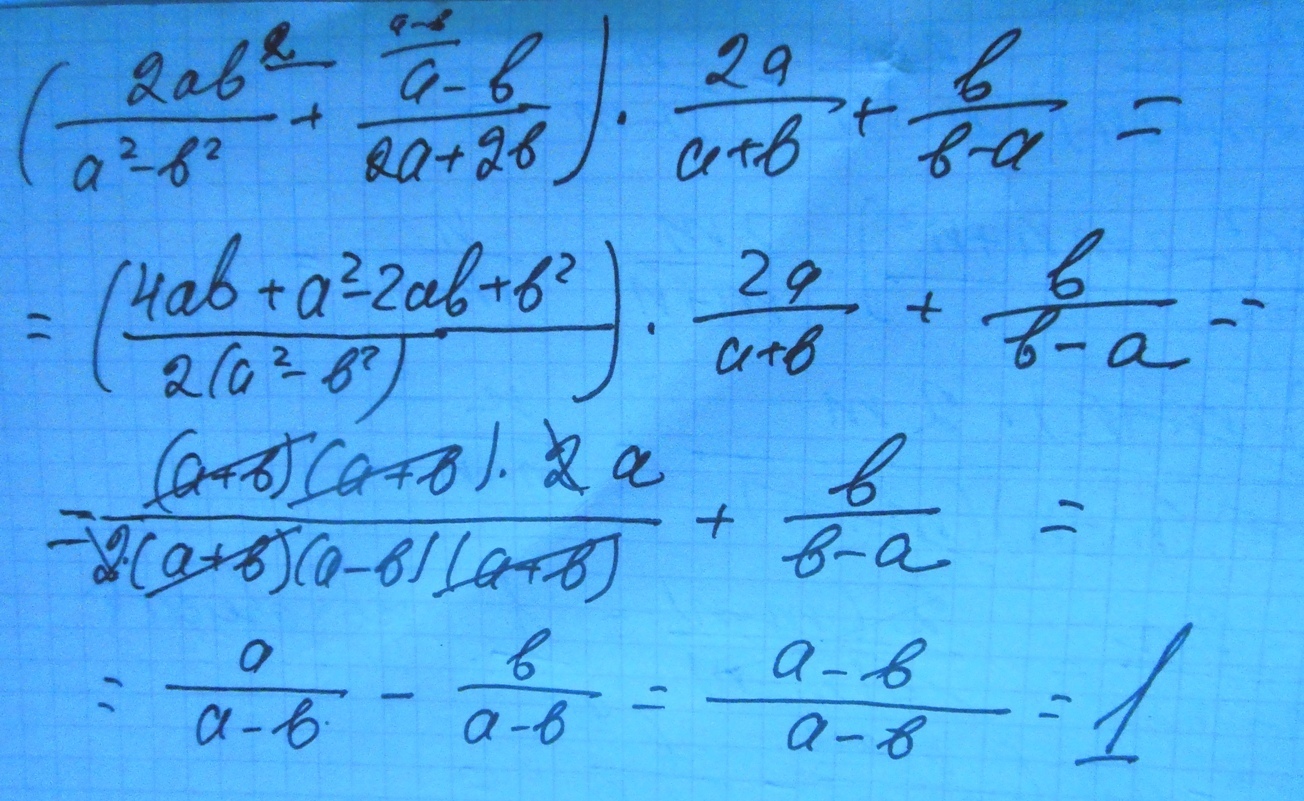 (2ab^2/(a²-b²) + (a-b)^(a-b)/(2a+2b)) · 2a/(a+b) + b/(b-a) =
= ((4ab+a²-2ab+b²)/(2(a²-b²))) · 2a/(a+b) + b/(b-a) =
= ((a+b)(a+b)·2a)/(2·(a+b)(a-b)(a+b)) + b/(b-a) =
= a/(a-b) - b/(a-b) = (a-b)/(a-b) = 1